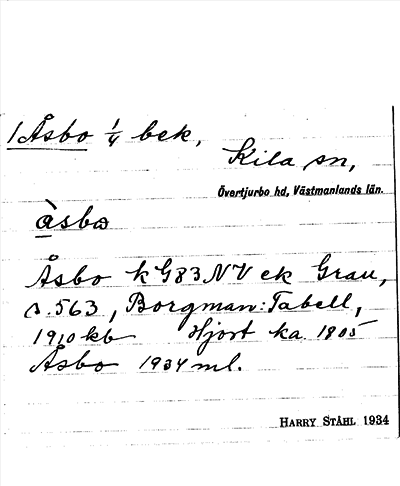 1 Åsbo 1/4 bek,
Kila sn,
Övertjurbo hd, Västmanlands län.
àsbω
Åsbo k G83NV ek Grau,
s. 563, Borgman: Tabell,
1910 kb Hjort ka. 1805
Åsbo 1934 ml.
HARRY STÅHL 1934